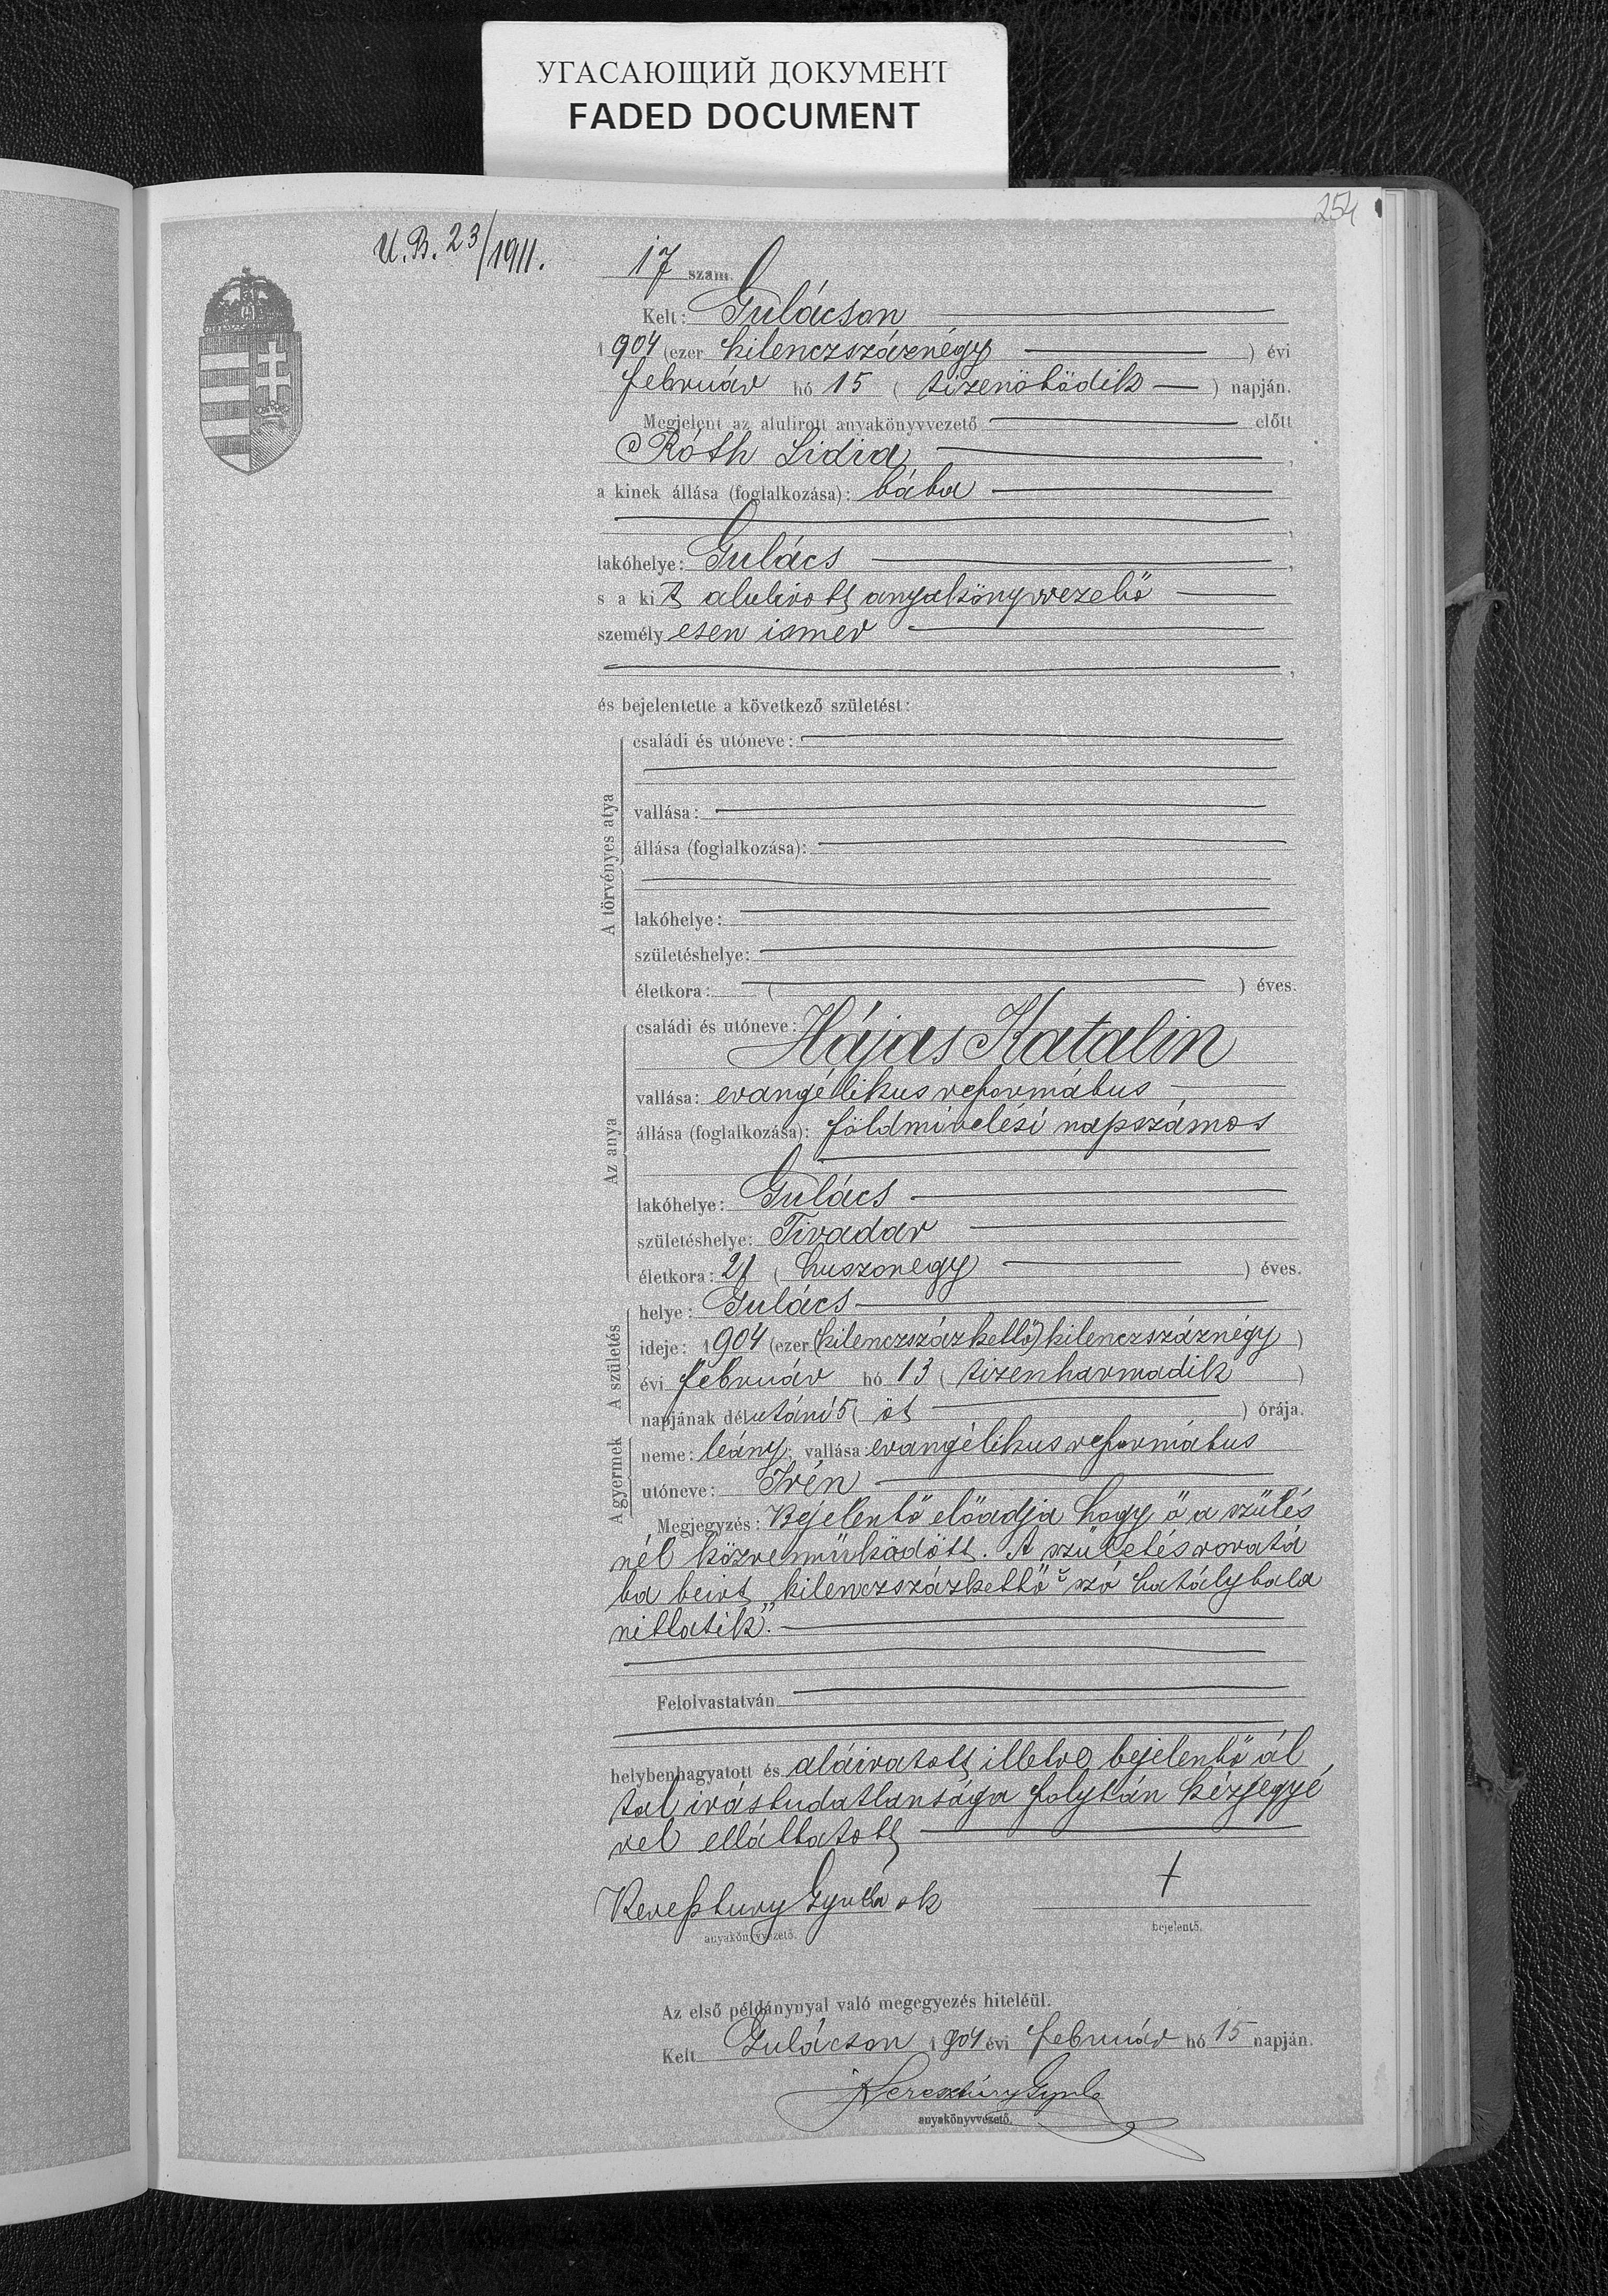 УГАСАЮЩИЙ ДОКУМЕНТ
FADED DOCUMENT
254
U.B. 23/1911.
17 szám.
Kelt: Gulácson
1904 (ezer kilenczszáznégy) évi
február hó 15 (tizenötödik) napján.
Megjelent az alulirott anyakönyvvezető előtt
Róth Lidia,
a kinek állása (foglalkozása): bába
,
lakóhelye: Gulács,
s a kit alulirott anyakönyvvezető
személyesen ismer
,
és bejelentette a következő születést:
A törvényes atya
családi és utóneve:
vallása:
állása (foglalkozása):
lakóhelye:
születéshelye:
életkora: ( ) éves.
Az anya
családi és utóneve: Hájas Katalin
vallása: evangélikus református
állása (foglalkozása): földmivelési napszámos
lakóhelye: Gulács
születéshelye: Tivadar
életkora: 21 (huszonegy) éves.
A születés
helye: Gulács
ideje: 1904 (ezer (kilenczszázkettő) kilenczszáznégy)
évi február hó 13 (tizenharmadik)
napjának délutáni 5 (öt) órája.
A gyermek
neme: leány; vallása: evangélikus református
utóneve: Irén
Megjegyzés: Bejelentő előadja hogy ő a szülés
nél közreműködött. A születés rovatá
ba beirt „kilenczszázkettő" szó hatálytala
nittatik".
Felolvastatván
helybenhagyatott és aláiratott illetve bejelentő ál
tal irástudatlansága folytán kézjegyé
vel elláttatott
Kereßtury Gyula sk
anyakönyvvezető.
+
bejelentő.
Az első példánynyal való megegyezés hiteléül.
Kelt Gulácson 1904 évi február hó 15 napján.
Keresztúry Gyula
anyakönyvvezető.